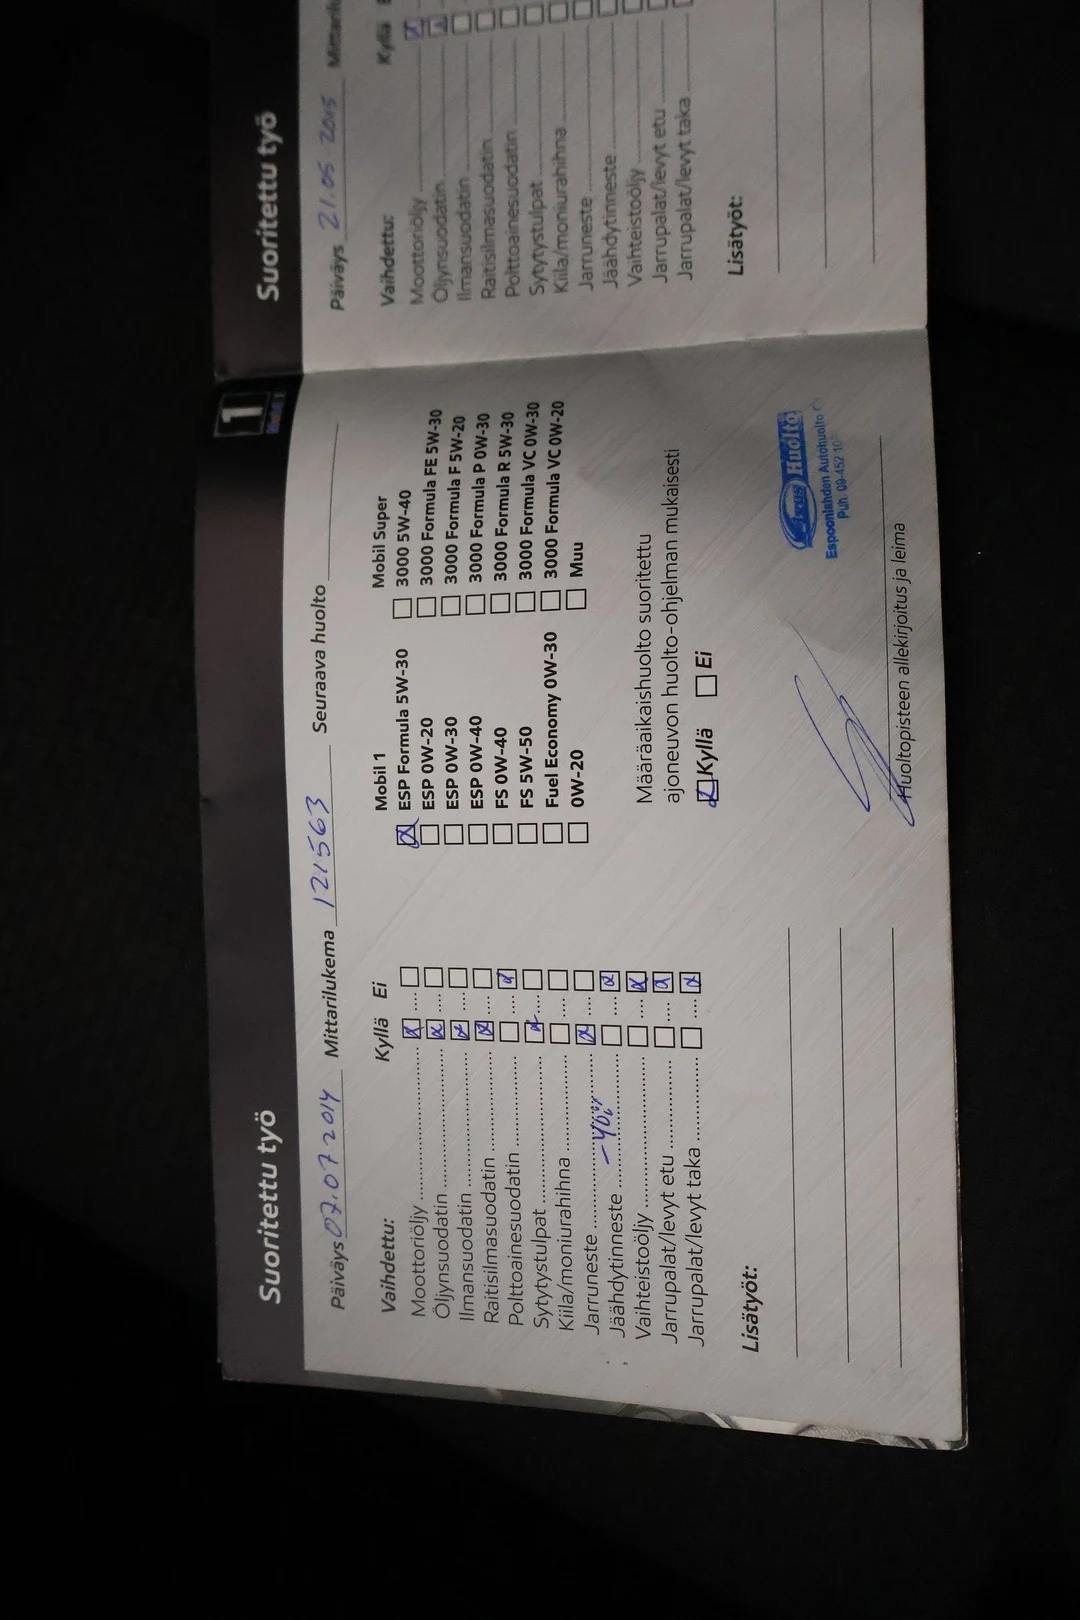 Suoritettu työ
Päiväys 07.07 2014 Mittarilukema 121563 Seuraava huolto
Vaihdettu: Kyllä Ei
Moottoriöljy
Öljynsuodatin
Ilmansuodatin
Raitisilmasuodatin
Polttoainesuodatin
Sytytystulpat
Kiila/moniurahihna
Jarruneste
Jäähdytinneste
Vaihteistoöljy
Jarrupalat/levyt etu
Jarrupalat/levyt taka
Lisätyöt:
Mobil 1
ESP Formula 5W-30
ESP 0W-20
ESP 0W-30
ESP 0W-40
FS 0W-40
FS 5W-50
Fuel Economy 0W-30
0W-20
Mobil Super
3000 5W-40
3000 Formula FE 5W-30
3000 Formula F 5W-20
3000 Formula P 0W-30
3000 Formula R 5W-30
3000 Formula VC 0W-30
3000 Formula VC 0W-20
Muu
Määräaikaishuolto suoritettu
ajoneuvon huolto-ohjelman mukaisesti
Kyllä Ei
Huolto
Espoonlahden Autohuolto
Puh. 09-452 10
Huoltopisteen allekirjoitus ja leima
1
Suoritettu työ
Päiväys 21.05 2015
Vaihdettu: Kyllä
Moottoriöljy
Öljynsuodatin
Ilmansuodatin
Raitisilmasuodatin
Polttoainesuodatin
Sytytystulpat
Kiila/moniurahihna
Jarruneste
Jäähdytinneste
Vaihteistoöljy
Jarrupalat/levyt etu
Jarrupalat/levyt taka
Lisätyöt: